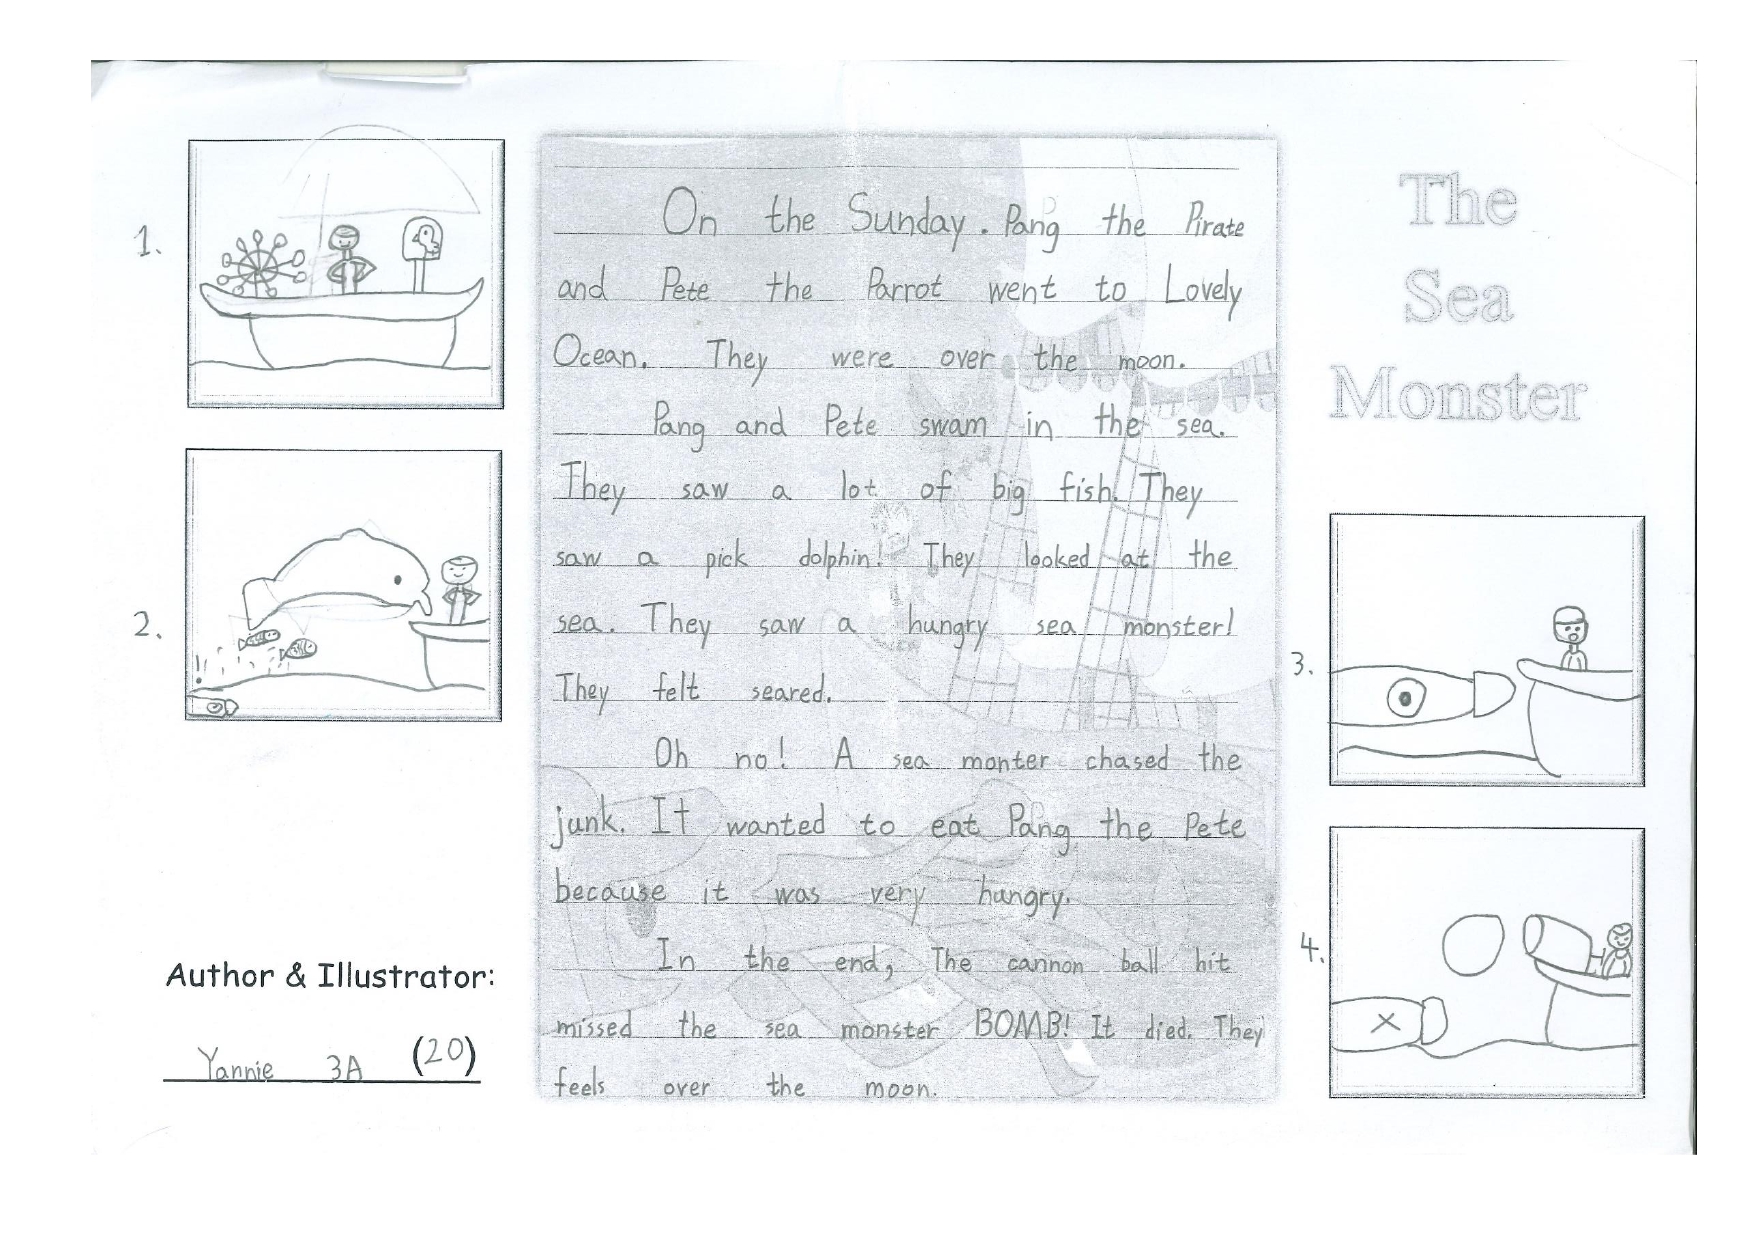 The
Sea
Monster
1.
2.
3.
4.
On the Sunday. Pang the Pirate
and Pete the Parrot went to Lovely
Ocean. They were over the moon.
Pang and Pete swam in the sea.
They saw a lot of big fish. They
saw a pick dolphin! They looked at the
sea. They saw a hungry sea monster!
They felt seared.
Oh no! A sea monter chased the
junk. It wanted to eat Pang the Pete
because it was very hungry.
In the end, The cannon ball hit
missed the sea monster BOMB! It died. They
feels over the moon.
Author & Illustrator:
Yannie 3A (20)